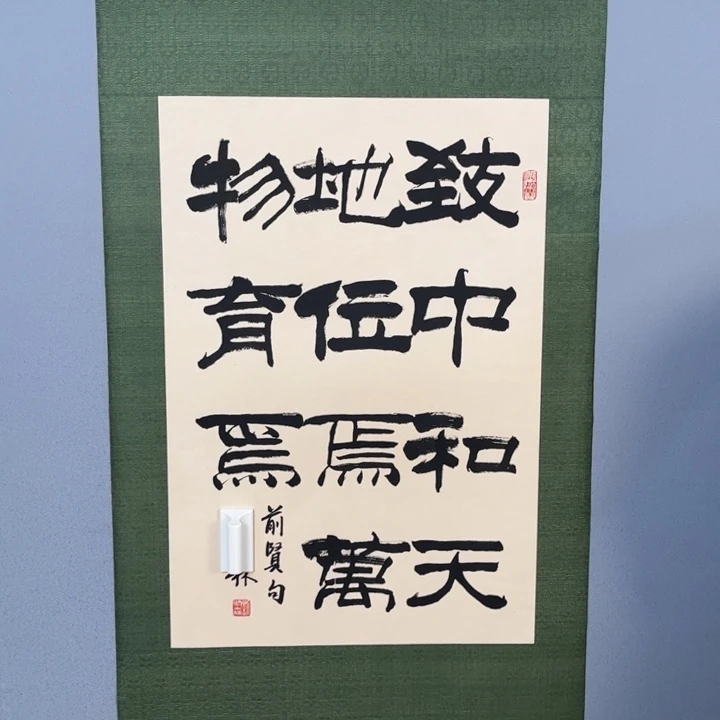 致中和天
地位焉萬
物育焉
前賢句